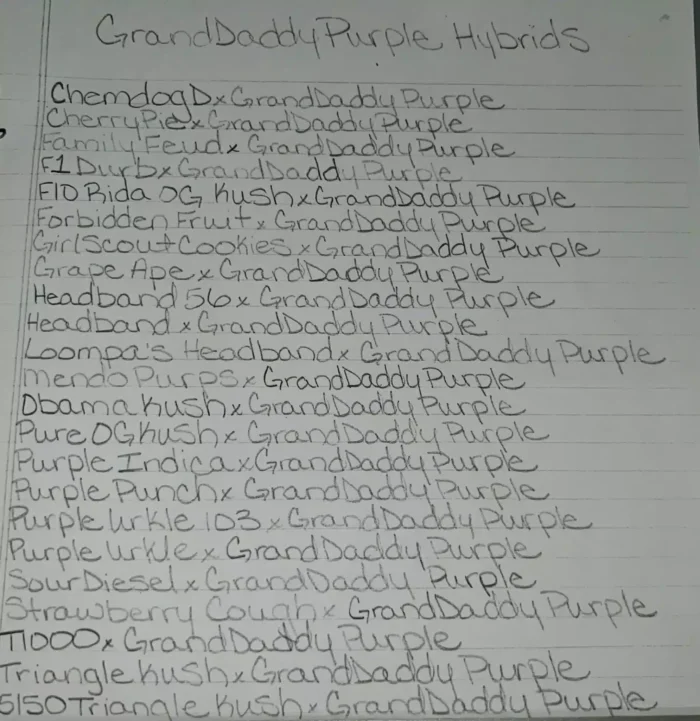 GrandDaddyPurple Hybrids
ChemdogDxGrandDaddy Purple
CherryPiexGrandDaddyPurple
Family Feudx GrandDaddyPurple
F1 DurbxGrandDaddy Purple
F10 Rida OG KushxGrandDaddy Purple
Forbidden Fruitx GrandDaddyPurple
GirlScoutCookies x GrandDaddy Purple
Grape Apex GrandDaddyPurple
Headband 56x GrandDaddy Purple
Headband xGrandDaddy Purple
Loompa's Headbandx GrandDaddy Purple
MendoPurpsxGrandDaddyPurple
ObamaKushxGrandDaddy Purple
PureOGKushx GrandDaddy Purple
Purple IndicaxGrandDaddy Purple
Purple Punchx GrandDaddy Purple
Purple Urkle 103 xGrandDaddy Purple
Purple Urklex GrandDaddy Purple
SourDiesel xGrandDaddy Purple
Strawberry Coughx GrandDaddy Purple
T1000x GrandDaddy Purple
Triangle KushxGrandDaddy Purple
5150Triangle KushxGrandDaddy Purple